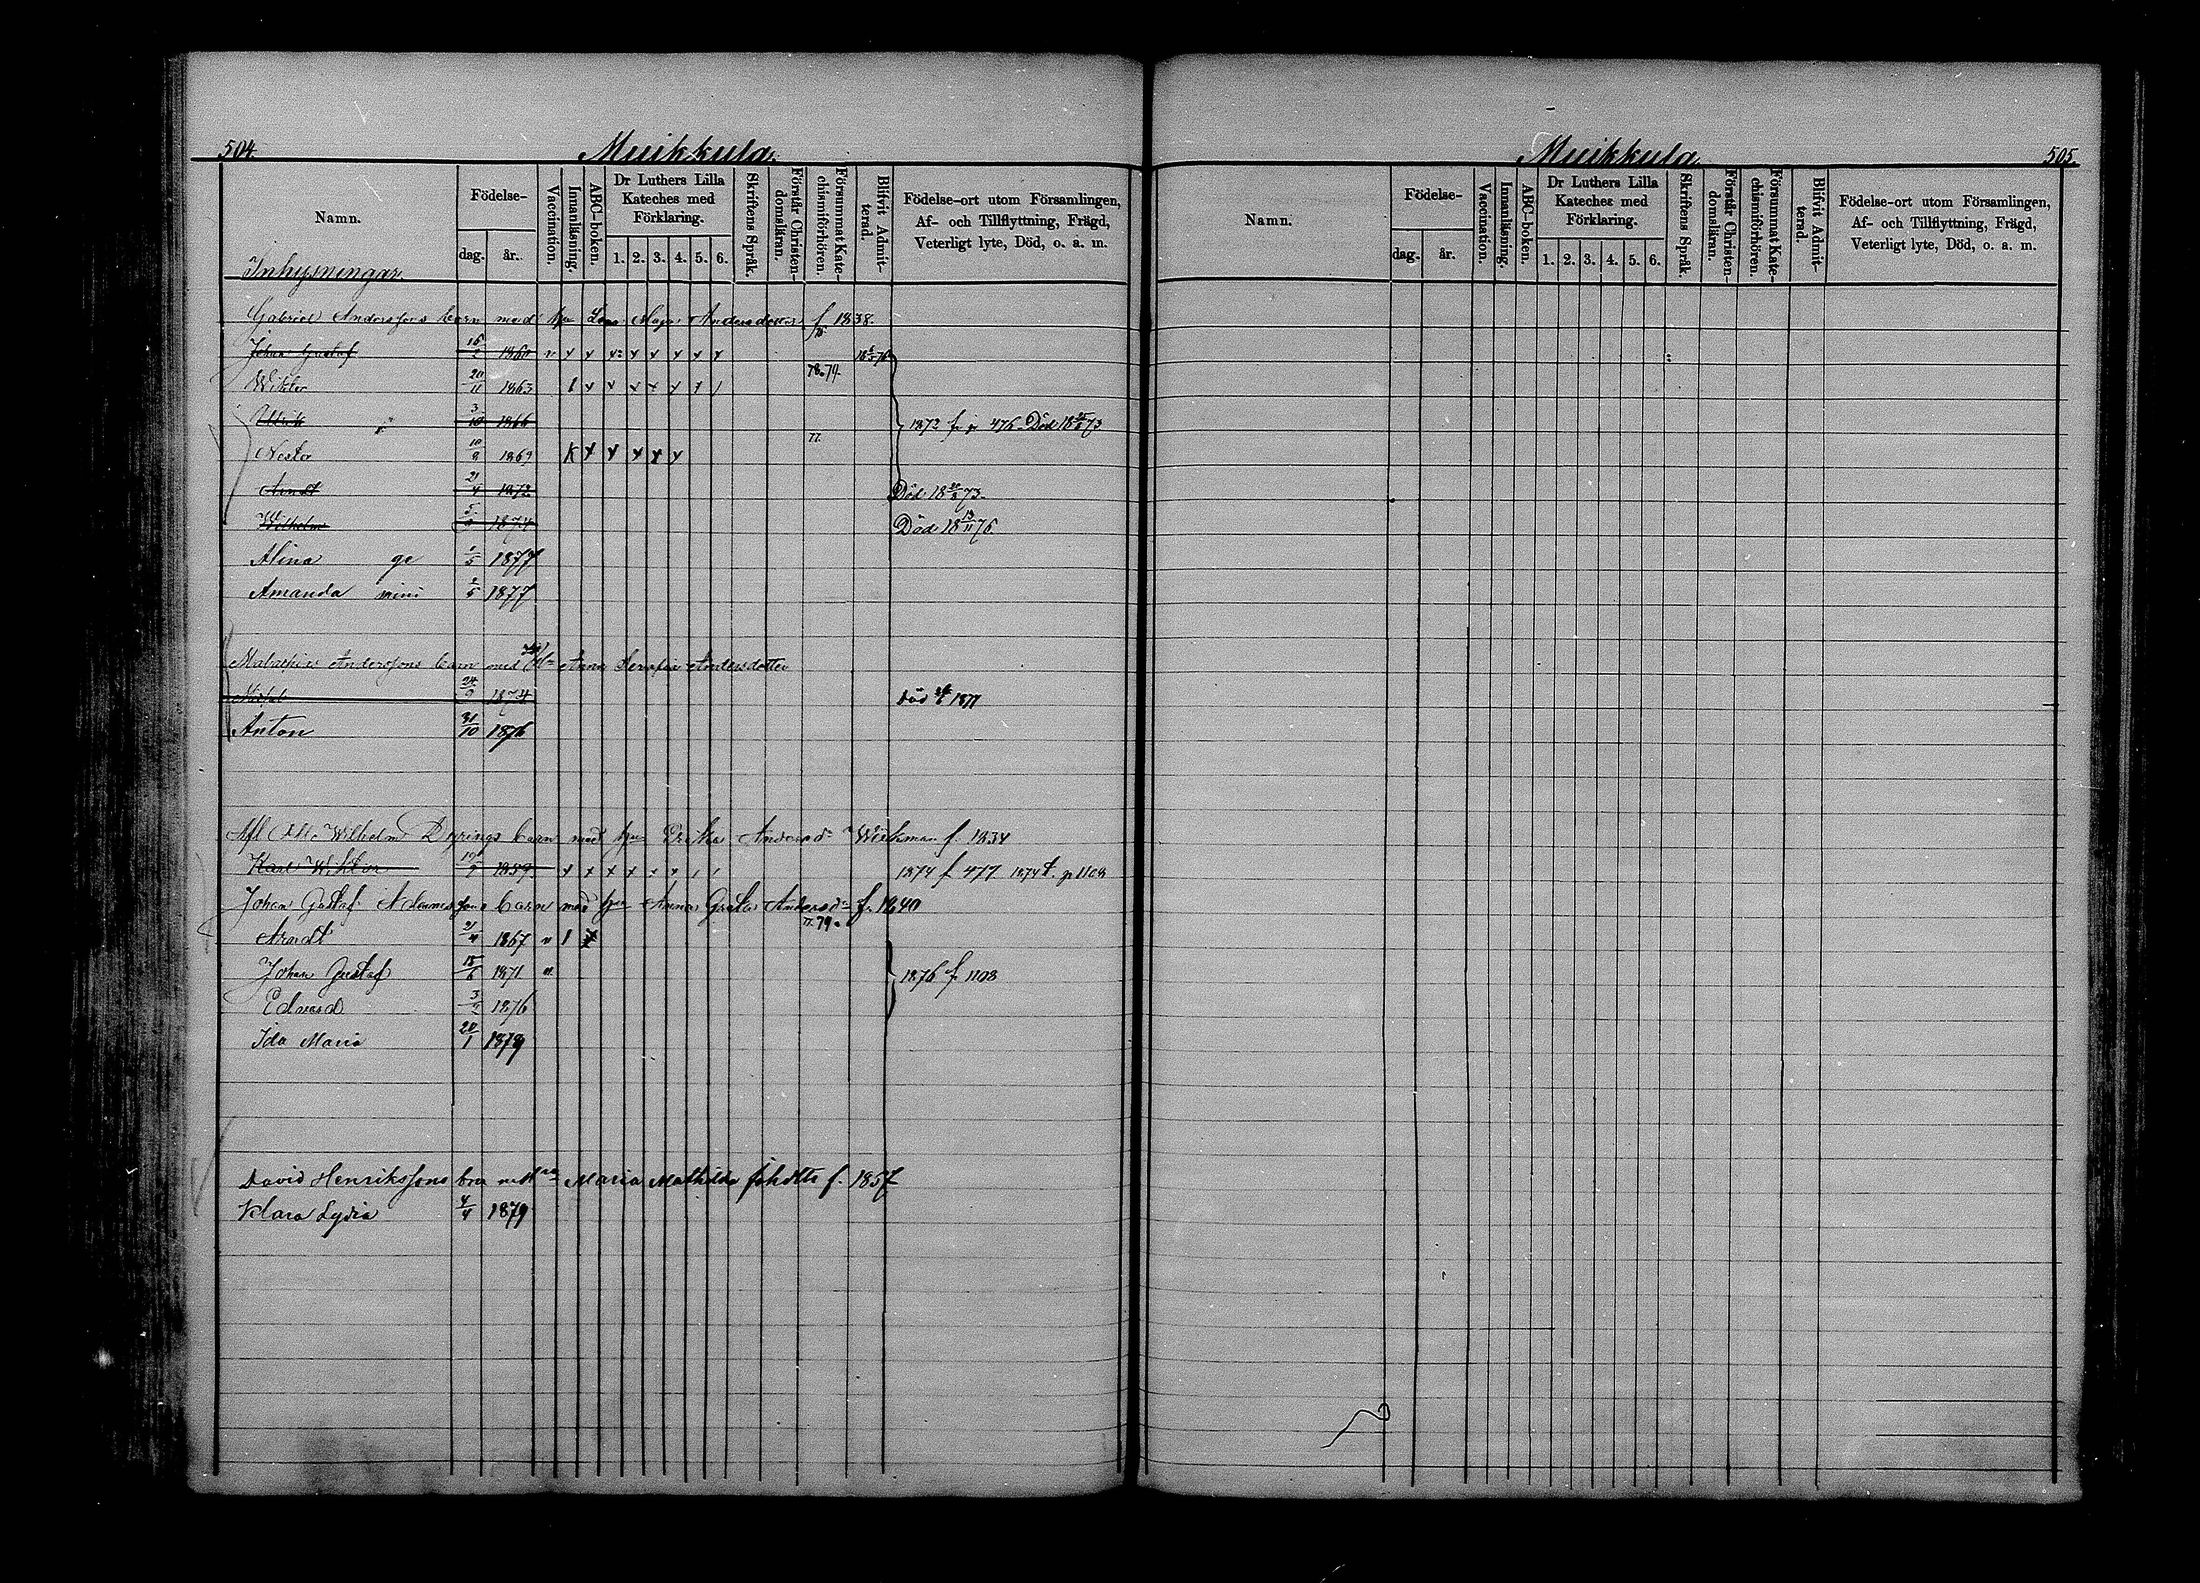 504. Muikkula.
Namn. Födelse- dag. år. Vaccination. Innanläsning. ABC-boken. Dr Luthers Lilla Kateches med Förklaring. 1. 2. 3. 4. 5. 6. Skriftens Språk. Förstår Christendomsläran. Försummat Katechismiförhören. Blifvit Admitterad. Födelse-ort utom Församlingen, Af- och Tillflyttning, Frägd, Veterligt lyte, Död, o. a. m.
Inhysningar.
Gabriel Anderssons barn med hu Lena Maja Andersdotter f. 1838.
Johan Gustaf 1860
Wiktor 20/11 1863 78.79.
Ulrik 3/10 1866 1873 fr p 476. Död
Nestor 1869 77.
Arndt 21/4 1872 Död 73.
Wilhelm 1874 Död 18 13/11 76.
Alina ge 1/5 1877
Amanda mini 2/5 1877
Anderssons barn med Anna Serafia Andersdotter
24/9 1874 Död 1877
Anton 31/10 1876
Wilhelm Dyrings barn med hu Erika Andersd:r Wickman f. 1834
Karl Wiktor 1859 1874 f 477 1874 t. p 1108
Johan Gustaf Adamssons barn med hu Anna Greta Andersd:r f. 1840
Arndt 1867 77.79.
Johan Gustaf 15/6 1871 1876 f. 1108
Edvard 3/2 1876
Ida Maria 20/1 1879
David Henrikssons barn med Maria Mathilda f. 1857
Klara Lydia 4/4 1879
Muikkula 505.
Namn. Födelse- dag. år. Vaccination. Innanläsning. ABC-boken. Dr Luthers Lilla Kateches med Förklaring. 1. 2. 3. 4. 5. 6. Skriftens Språk. Förstår Christendomsläran. Försummat Katechismiförhören. Blifvit Admitterad. Födelse-ort utom Församlingen, Af- och Tillflyttning, Frägd, Veterligt lyte, Död, o. a. m.